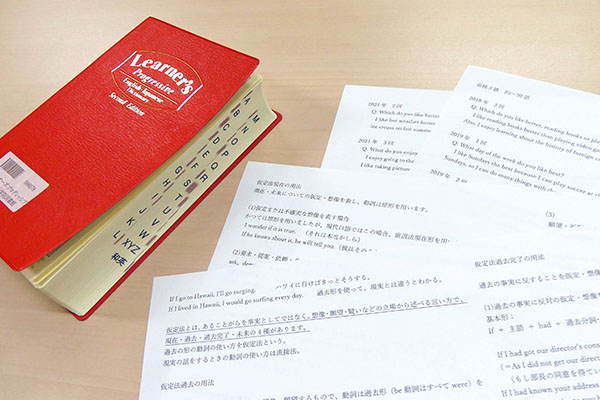 Learner's
Progressive
English-Japanese
Dictionary
Second Edition
A M
B N
C O
D P
E Q
F R
G S
H T
I U
J V
K W
L XYZ
和英
英検3級
2021年 2回
Q. Which do you like better
I like hot weather better
ice cream on hot summe
2021年 3回
Q. What do you enjoy
I enjoy going to the
I like taking picture
2018年 3回
Q. Which do you like better, reading books or pla
I like reading books better than playing video
Also, I enjoy learning about the history of foreign co
2019年 1回
Q. What day of the week do you like best?
I like Sundays the best because I can play soccer at
Sundays, so I can do many things with
2019年 2
仮定法現在の用法
現在・未来についての仮定・想像を表し、動詞は原形を用います。
(1)仮定または不確実な想像を表す場合
かつては原形を用いましたが、現代口語ではこの場合、直説法現在形を用
I wonder if it is true. (それは本当かしら)
If he knows about it, he will tell you. (彼はその
(2)要求・提案・依頼・
ask, de
(3)
願望・祈
If I go to Hawaii, I'll go surging. ハワイに行けばきっとそうする。
If I lived in Hawaii, I would go surfing every day. 過去形を使って、現実とは違うとわかる。
仮定法とは、あることがらを事実としてではなく、想像・願望・疑いなどの立場から述べる言い方で、
現在・過去・過去完了・未来の4種があります。
過去の形の動詞の使い方を仮定法という。
現実の話をするときの動詞の使い方は直接法。
仮定法過去の用法
するもので、動詞は過去形 (be動詞はすべて were) を
仮定法過去完了の用法
過去の事実に反することを仮定・想像
(1)過去の事実に反対の仮定・想像
基本形:
If + 主語 + had + 過去分詞
If I had got our director's cons
(=As I did not get our direct
(もし部長の同意を得てい
If I had known your address